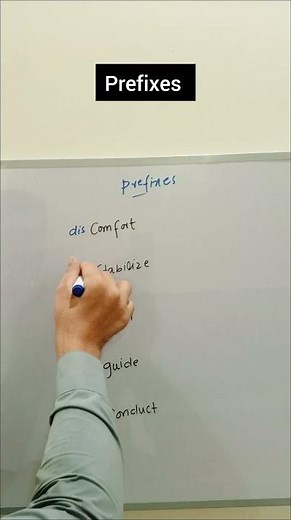 Prefixes
Prefixes
dis Comfort
Stabilize
guide
Conduct